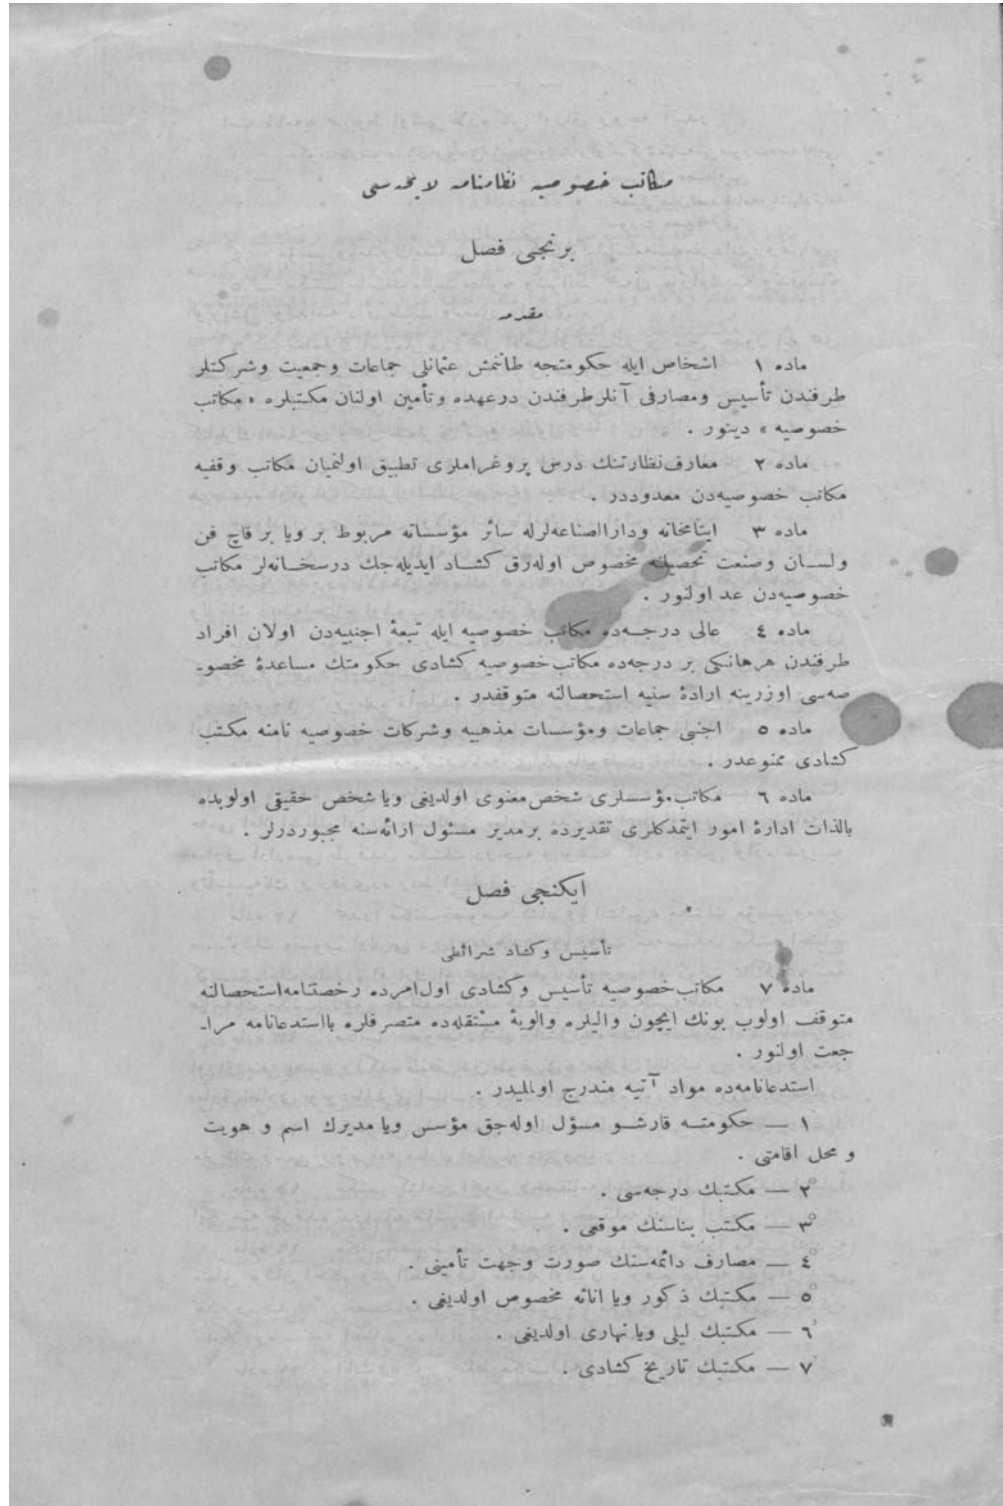 مكاتب خصوصيه نظامنامه لايحه‌سی
برنجی فصل
مقدمه
ماده ١ اشخاص ايله حكومتجه طانمش عثمانلی جماعات وجمعيت وشركتلر
طرفندن تأسيس ومصارفی آنلر طرفندن درعهده وتأمين اولنان مكتبلره « مكاتب
خصوصيه » دينور .
ماده ٢ معارف نظارتنك درس پروغراملری تطبيق اولنميان مكاتب وقفيه
مكاتب خصوصيه‌دن معدوددر .
ماده ٣ ايتامخانه ودارالصناعه‌لرله سائر مؤسساته مربوط بر ويا بر قاچ فن
ولسان وصنعت تحصيلنه مخصوص اوله‌رق كشاد ايديله‌جك درسخانه‌لر مكاتب
خصوصيه‌دن عد اولنور .
ماده ٤ عالی درجه‌ده مكاتب خصوصيه ايله تبعهٔ اجنبيه‌دن اولان افراد
طرفندن هرهانكی بر درجه‌ده مكاتب خصوصيه كشادی حكومتك مساعدهٔ مخصو-
صه‌سی اوزرينه ارادهٔ سنيه استحصالنه متوقفدر .
ماده ٥ اجنبی جماعات ومؤسسات مذهبيه وشركات خصوصيه نامنه مكتب
كشادی ممنوعدر .
ماده ٦ مكاتب مؤسسلری شخص معنوی اولديغی ويا شخص حقيقی اولوبده
بالذات ادارهٔ امور ايتمدكلری تقديرده بر مدير مسئول ارائه‌سنه مجبوردرلر .
ايكنجی فصل
تأسيس وكشاد شرائطی
ماده ٧ مكاتب خصوصيه تأسيس وكشادی اول امرده رخصتنامه استحصالنه
متوقف اولوب بونك ايچون واليلره والويهٔ مستقله‌ده متصرفلره بااستدعانامه مرا-
جعت اولنور .
استدعانامه‌ده مواد آتيه مندرج اولمليدر .
١ — حكومته قارشو مسؤل اوله‌جق مؤسس ويا مديرك اسم و هويت
و محل اقامتی .
٢ْ — مكتبك درجه‌سی .
٣ْ — مكتب بناسنك موقعی .
٤ْ — مصارف دائمه‌سنك صورت وجهت تأمينی .
٥ْ — مكتبك ذكور ويا اناثه مخصوص اولديغی .
٦ْ — مكتبك ليلی ويا نهاری اولديغی .
٧ْ — مكتبك تاريخ كشادی .